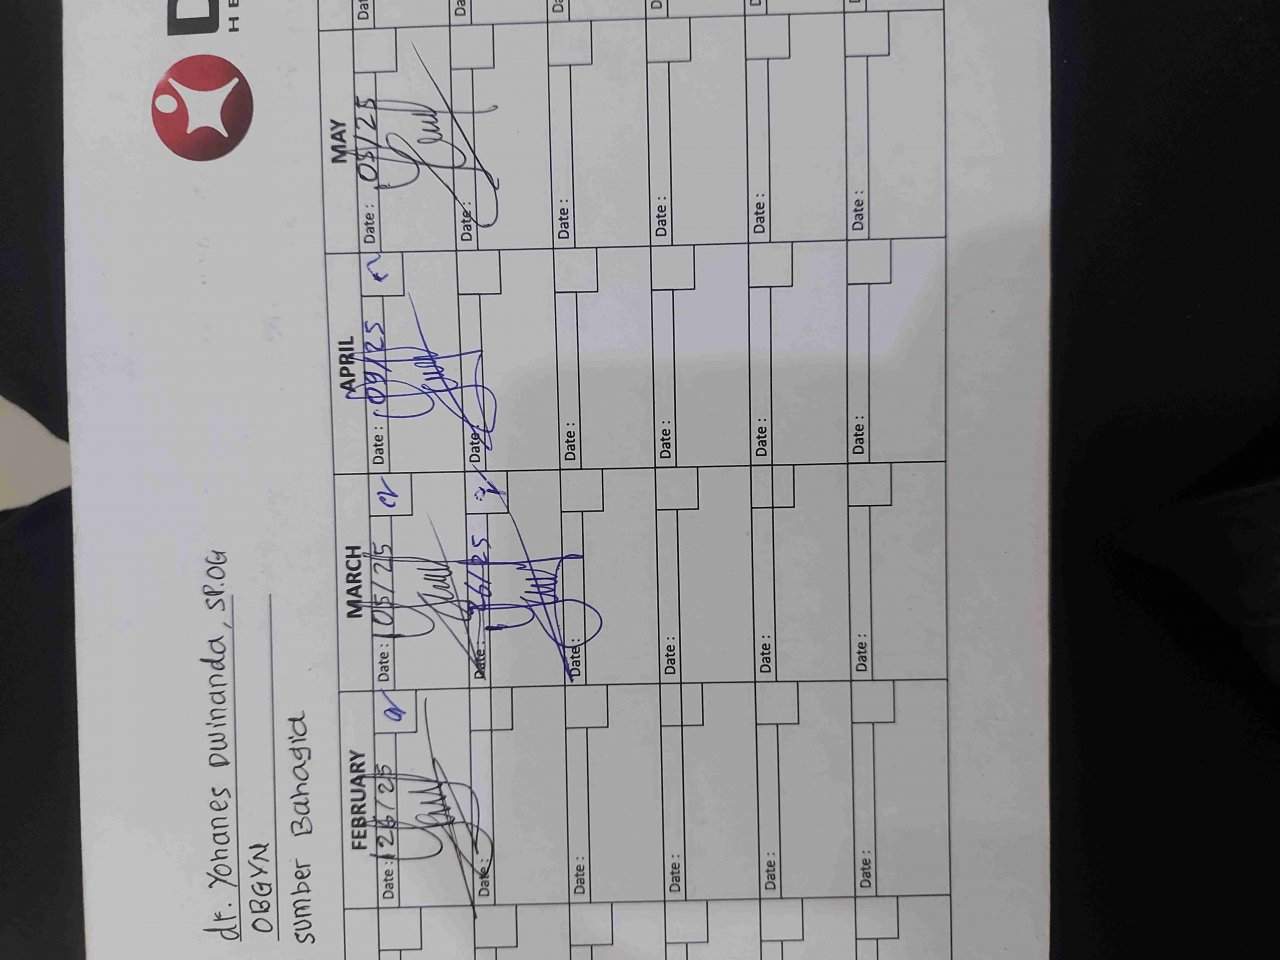 dr. Yohanes Dwinanda, SP.OG
OBGYN
Sumber Bahagia
D
HE
FEBRUARY MARCH APRIL MAY
Date : 26/25 Date : 05/25 Date : 09/25 Date : 05/25 Dat
Date : Date : 26/25 Date : Date : Da
Date : Date : Date : Date : Da
Date : Date : Date : Date : D
Date : Date : Date : Date : D
Date : Date : Date : Date : D